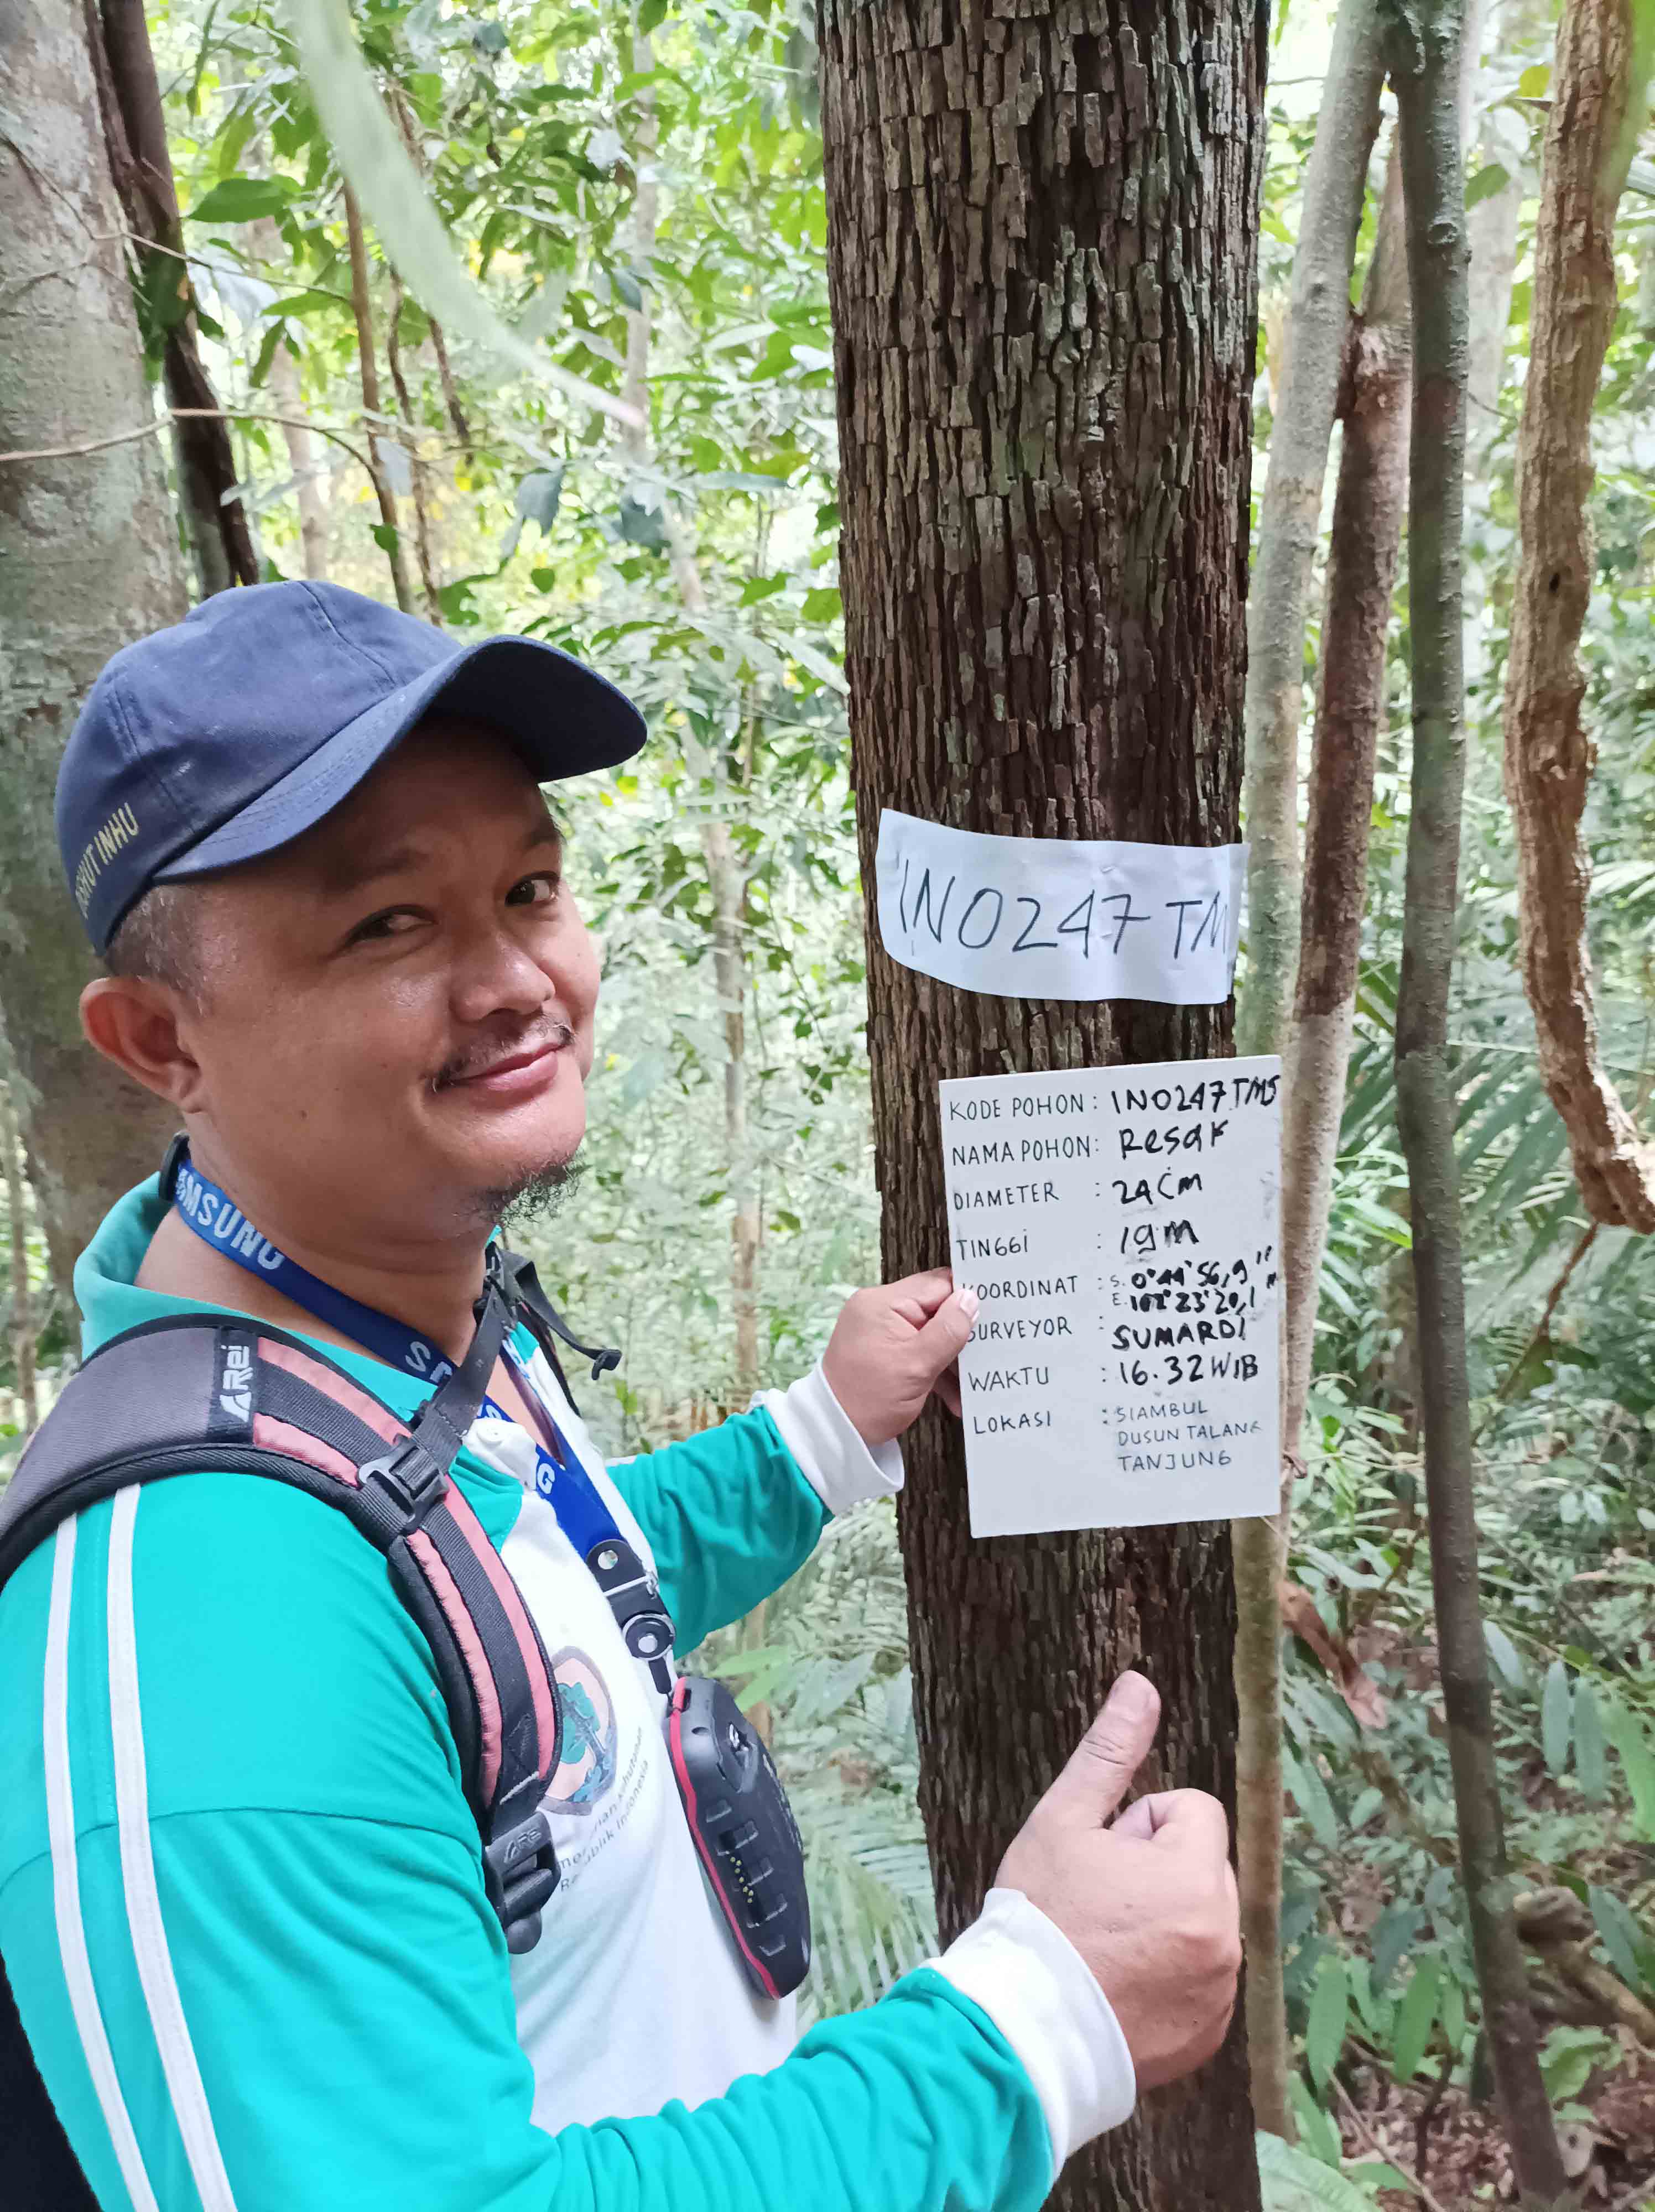 INO247TM
KODE POHON : INO247TMS
NAMA POHON : Resak
DIAMETER : 24 Cm
TINGGI : 19 M
KOORDINAT : S. 0°44'56,9"
E. 102°23'20,1"
SURVEYOR : SUMARDI
WAKTU : 16.32 WIB
LOKASI : SIAMBUL
DUSUN TALANG
TANJUNG
SHUT INHU
AMSUNG
AREI
Republik Indonesia